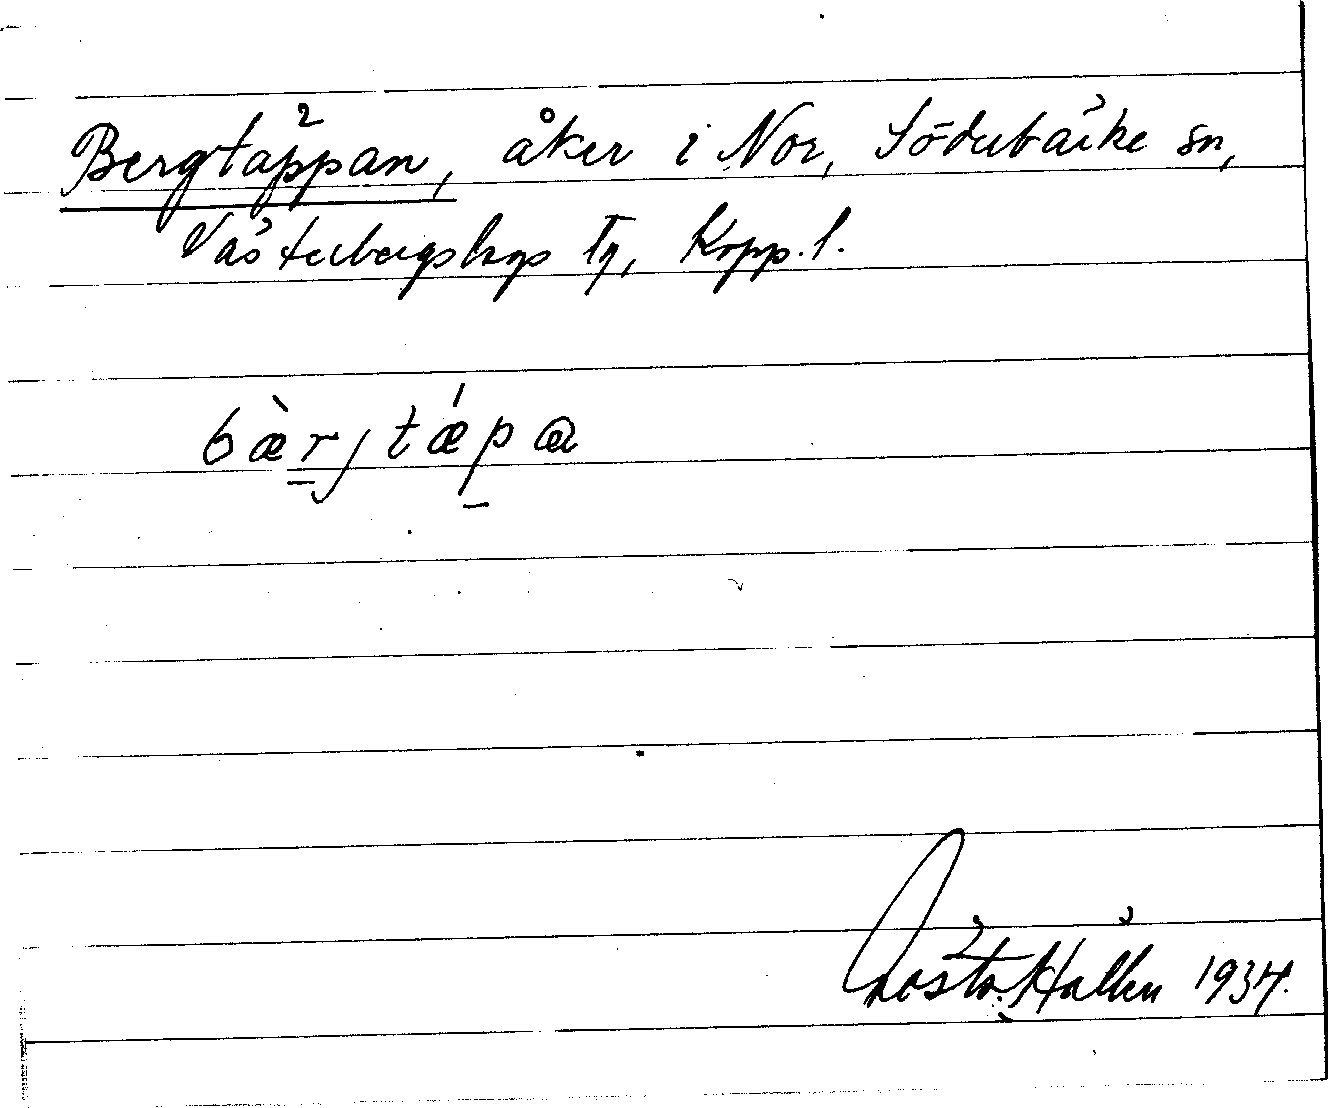 Bergtäppan, åker i Nor, Söderbärke sn,
Västerbergslags tg, Kopp. l.
bæ̀r̲jtǽp̲a
Gösta Hallén 1934.